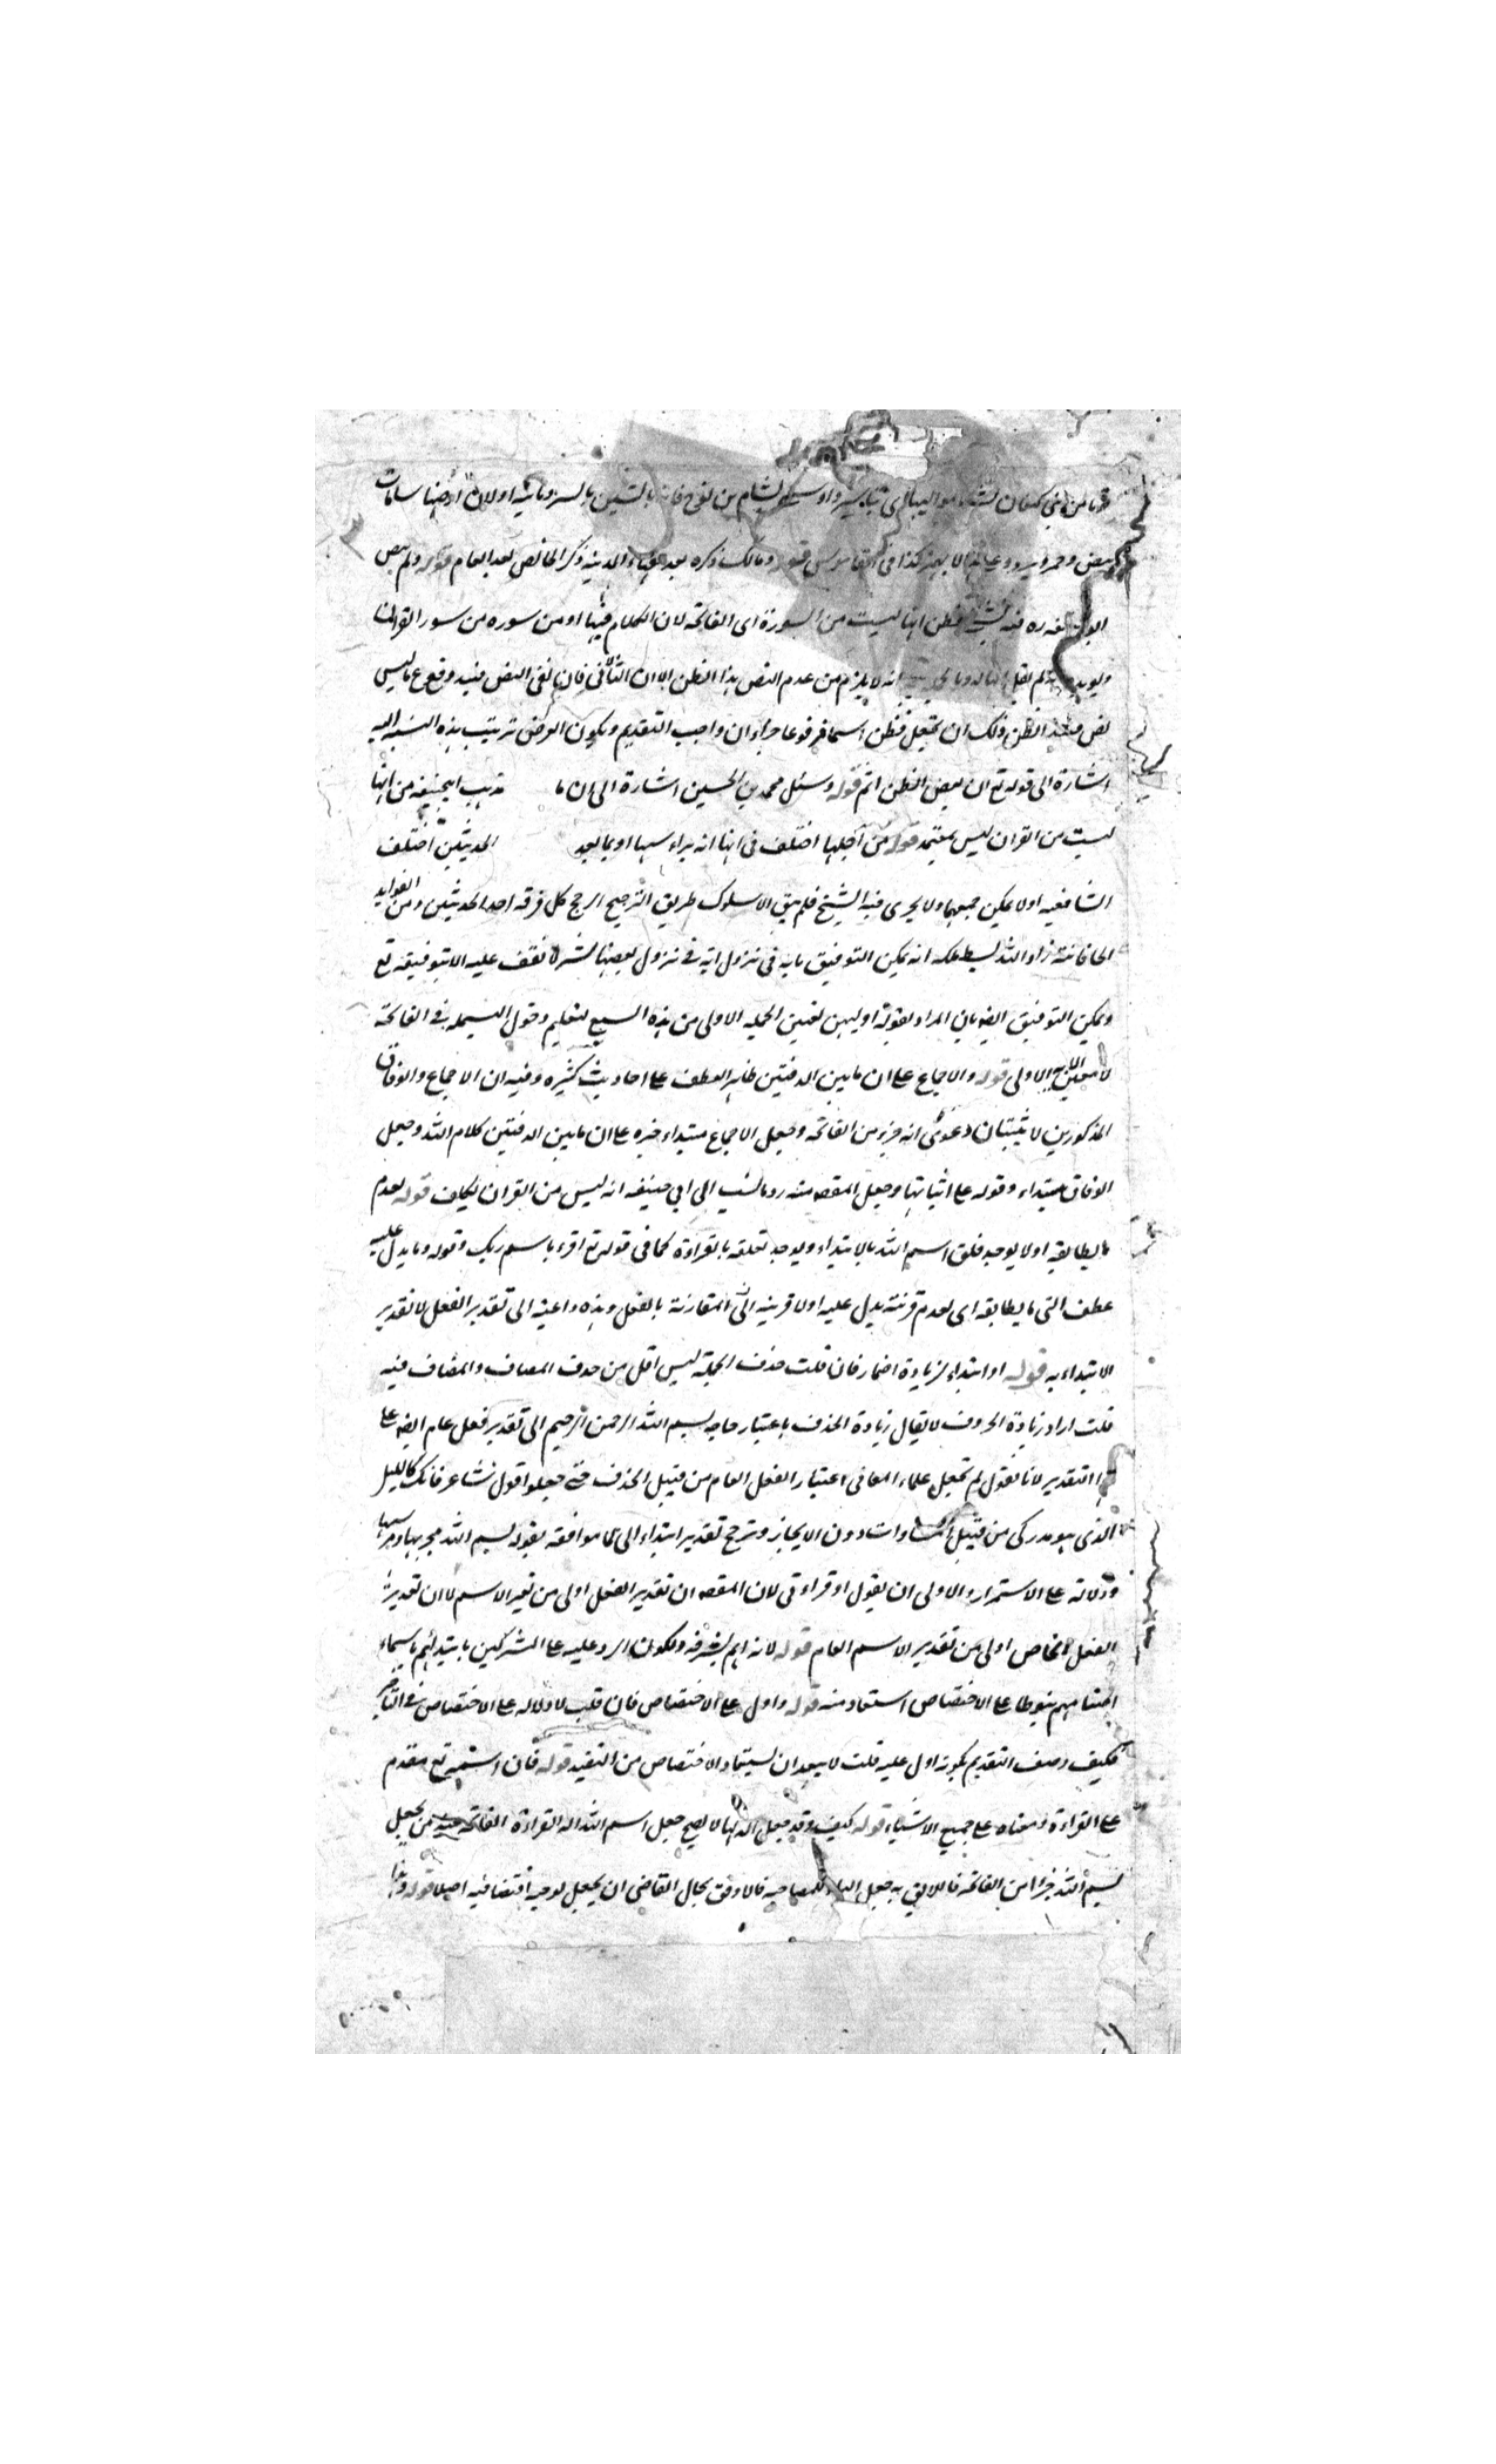 قوما من بني كنعان تشاءموا اليها اي تياسروا او سمي بشام بن نوح فانه بالشين بالسريانية او لان ارضها شامات
بيض وحمر وسود وعلى هذا لا يهمز كذا في القاموس قوله ومالك ذكره بعد فقهاء المدينة ذكر الخاص بعد العام قوله ولم ينص
ابو حنيفه ره فيه بشيء فظن انها ليست من السورة اى الفاتحة لان الكلام فيها او من سوره من سور القران
لم يقل انه لا يلزم من عدم النص هذا الظن الا ان الثاني فان نفى النص فيه وقع ع ما ليس
نص فيفيد الظن ولك ان تجعل فظن اسما مرفوعا خبر ان واجب التقديم ويكون الغرض ترتيب هذه النسبه اليه
اشارة الى قوله تع ان بعض الظن اثم قوله وسئل محمد بن الحسين اشارة الى ان ما مذهب ابيحنيفه من انها
ليست من القران ليس بمعتمد قوله من اجلها اختلف فى انها اية براسها او بما بعد الحديثين اختلف
الشافعيه اولا يمكن جمعهما ولا يجرى فيه النسخ فلم يبق الا سلوك طريق الترجيح ارجح كل فرقه احد الحديثين ومن الفوايد
الخاقانية زاد الله بسطه ملكه انه يمكن التوفيق بانه فى نزول اية وفي نزول بعضها لا نقف عليه الا بتوفيقه تع
ويمكن التوفيق ايضه بان المراد بقوله اوليهن تعيين الجمله الاولى من هذه السبع لتعليم دخول البسمله في الفاتحة
لا تعيين الاية الاولى قوله والاجماع على ان ما بين الدفتين ظاهر العطف على احاديث كثيره وفيه ان الاجماع والوفاق
المذكورين لا يثبتان دعوى انه جزء من الفاتحه وجعل الاجماع مبتداء خبره على ان ما بين الدفتين كلام الله وجعل
الوفاق مبتداء وقوله على اثباتها وجعل المقصه منه رد ما نسب الى ابي حنيفه انه ليس من القران تكلف قوله لعدم
ما يطابقه اولا يوجد فلق اسم الله بالابتداء ويوجد تعلقه بالقراءة كما فى قوله تع اقرء باسم ربك وقوله وما يدل عليه
عطف التى ما يطابقه اى لعدم قرينة يدل عليه اولا قرينه الا المقارنة بالفعل وهذه داعية الى تقدير الفعل لا تقدير
الابتداء به قوله او ابتداء لزيادة اضمار فان قلت حذف الجملة ليس اقل من حذف المضاف والمضاف فيه
قلت اراد زيادة الحروف لا يقال زيادة الحذف باعتبار حاجه بسم الله الرحمن الرحيم الى تقدير فعل عام ايضه على
هذا التقدير لانا نقول لم تجعل علماء المعانى اعتبار الفعل العام من قبيل الحذف حتى جعلوا قول شاعر فانك كالليل
الذى هو مدركى من قبيل المساوات دون الايجاز وترجح تقدير ابتداء الى ما موافقه بقوله بسم الله مجريها ومرسيها
ودلالته على الاستمرار والاولى ان يقول او قراءتى لان المقصه ان تقدير الفعل اولى من تقدير الاسم لا ان تقدير
الفعل الخاص اولى من تقدير الاسم العام قوله لانه اهم لشرفه ولكون الرد عليه على المشركين بابتدائهم باسماء
اصنامهم منوطا على الاختصاص استفاد منه قوله وادل على الاختصاص فان قلت لا دلاله على الاختصاص في التاخير
فكيف وصف التقديم بكونه ادل عليه قلت لا يبعد ان يستفاد الاختصاص من التقييد قوله فان اسمه تع مقدم
على القراءة ومعناه على جميع الاشياء قوله كيف وقد جعل الة لها لا يصح جعل اسم الله الة القراءة الفاتحه من يجعل
بسم الله جزءا من الفاتحه فاللايق به جعل الباء للمصاحبه فالاوفق بحال القاضى ان يجعل لوجه اختضافيه اصلا قوله وهذا